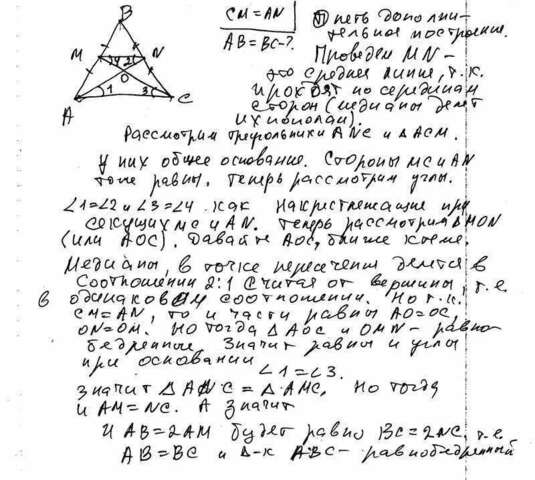 B
CM = AN
AB = BC - ?
П) петь дополни-
тельное построение.
M N
1 2
O
A 1 3 C
Проведем MN -
это средняя линия, т.к.
проходят по серединам
сторон (медианы делят
их пополам).
Рассмотрим треугольники ANC и ΔACM.
У них общее основание. Стороны MC и AN
тоже равны. Теперь рассмотрим углы.
∠1=∠2 и ∠3=∠4 как накрестлежащие при
секущих MC и AN. Теперь рассмотрим ΔMON
(или AOC). Давайте AOC, ближе к теме.
Медианы, в точке пересечения делятся в
соотношении 2:1 считая от вершины, т.е
в одинаковом соотношении. Но т.к.
CM=AN, то и части равны AO=OC,
ON=OM. Но тогда ΔAOC и OMN - равно-
бедренные. Значит равны и углы
при основании
∠1=∠3.
Значит ΔANC = ΔAMC. Но тогда
и AM=NC. А значит
и AB=2AM будет равно BC=2NC, т.е
AB=BC и Δ-к ABC - равнобедренный